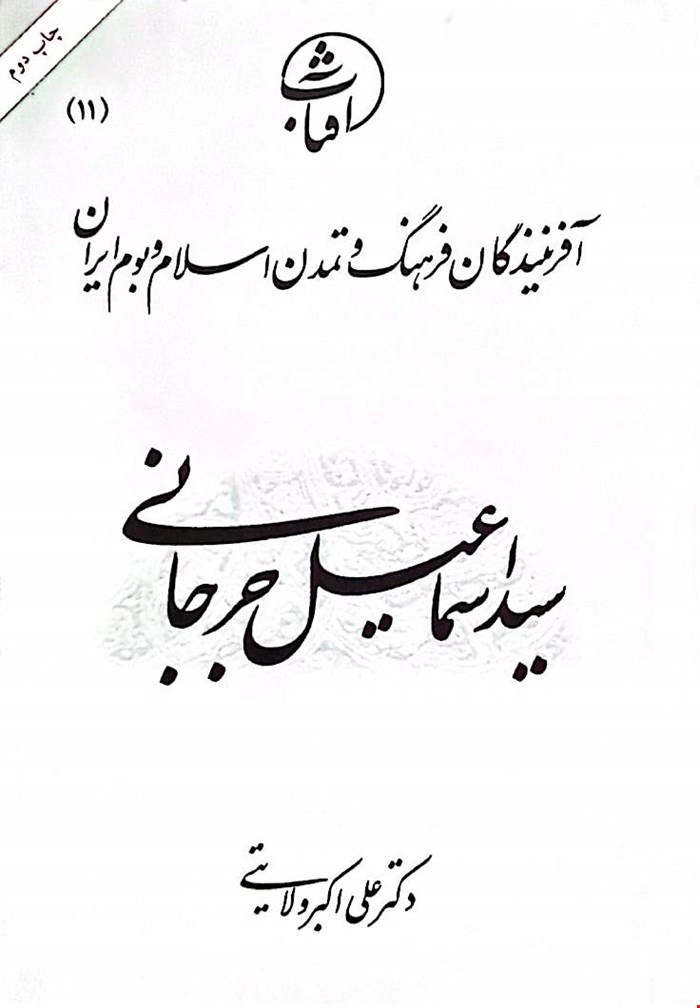 چاپ دوم
(۱۱)
آفرینندگان فرهنگ و تمدن اسلام و بوم ایران
سید اسماعیل جرجانی
دکتر علی اکبر ولایتی